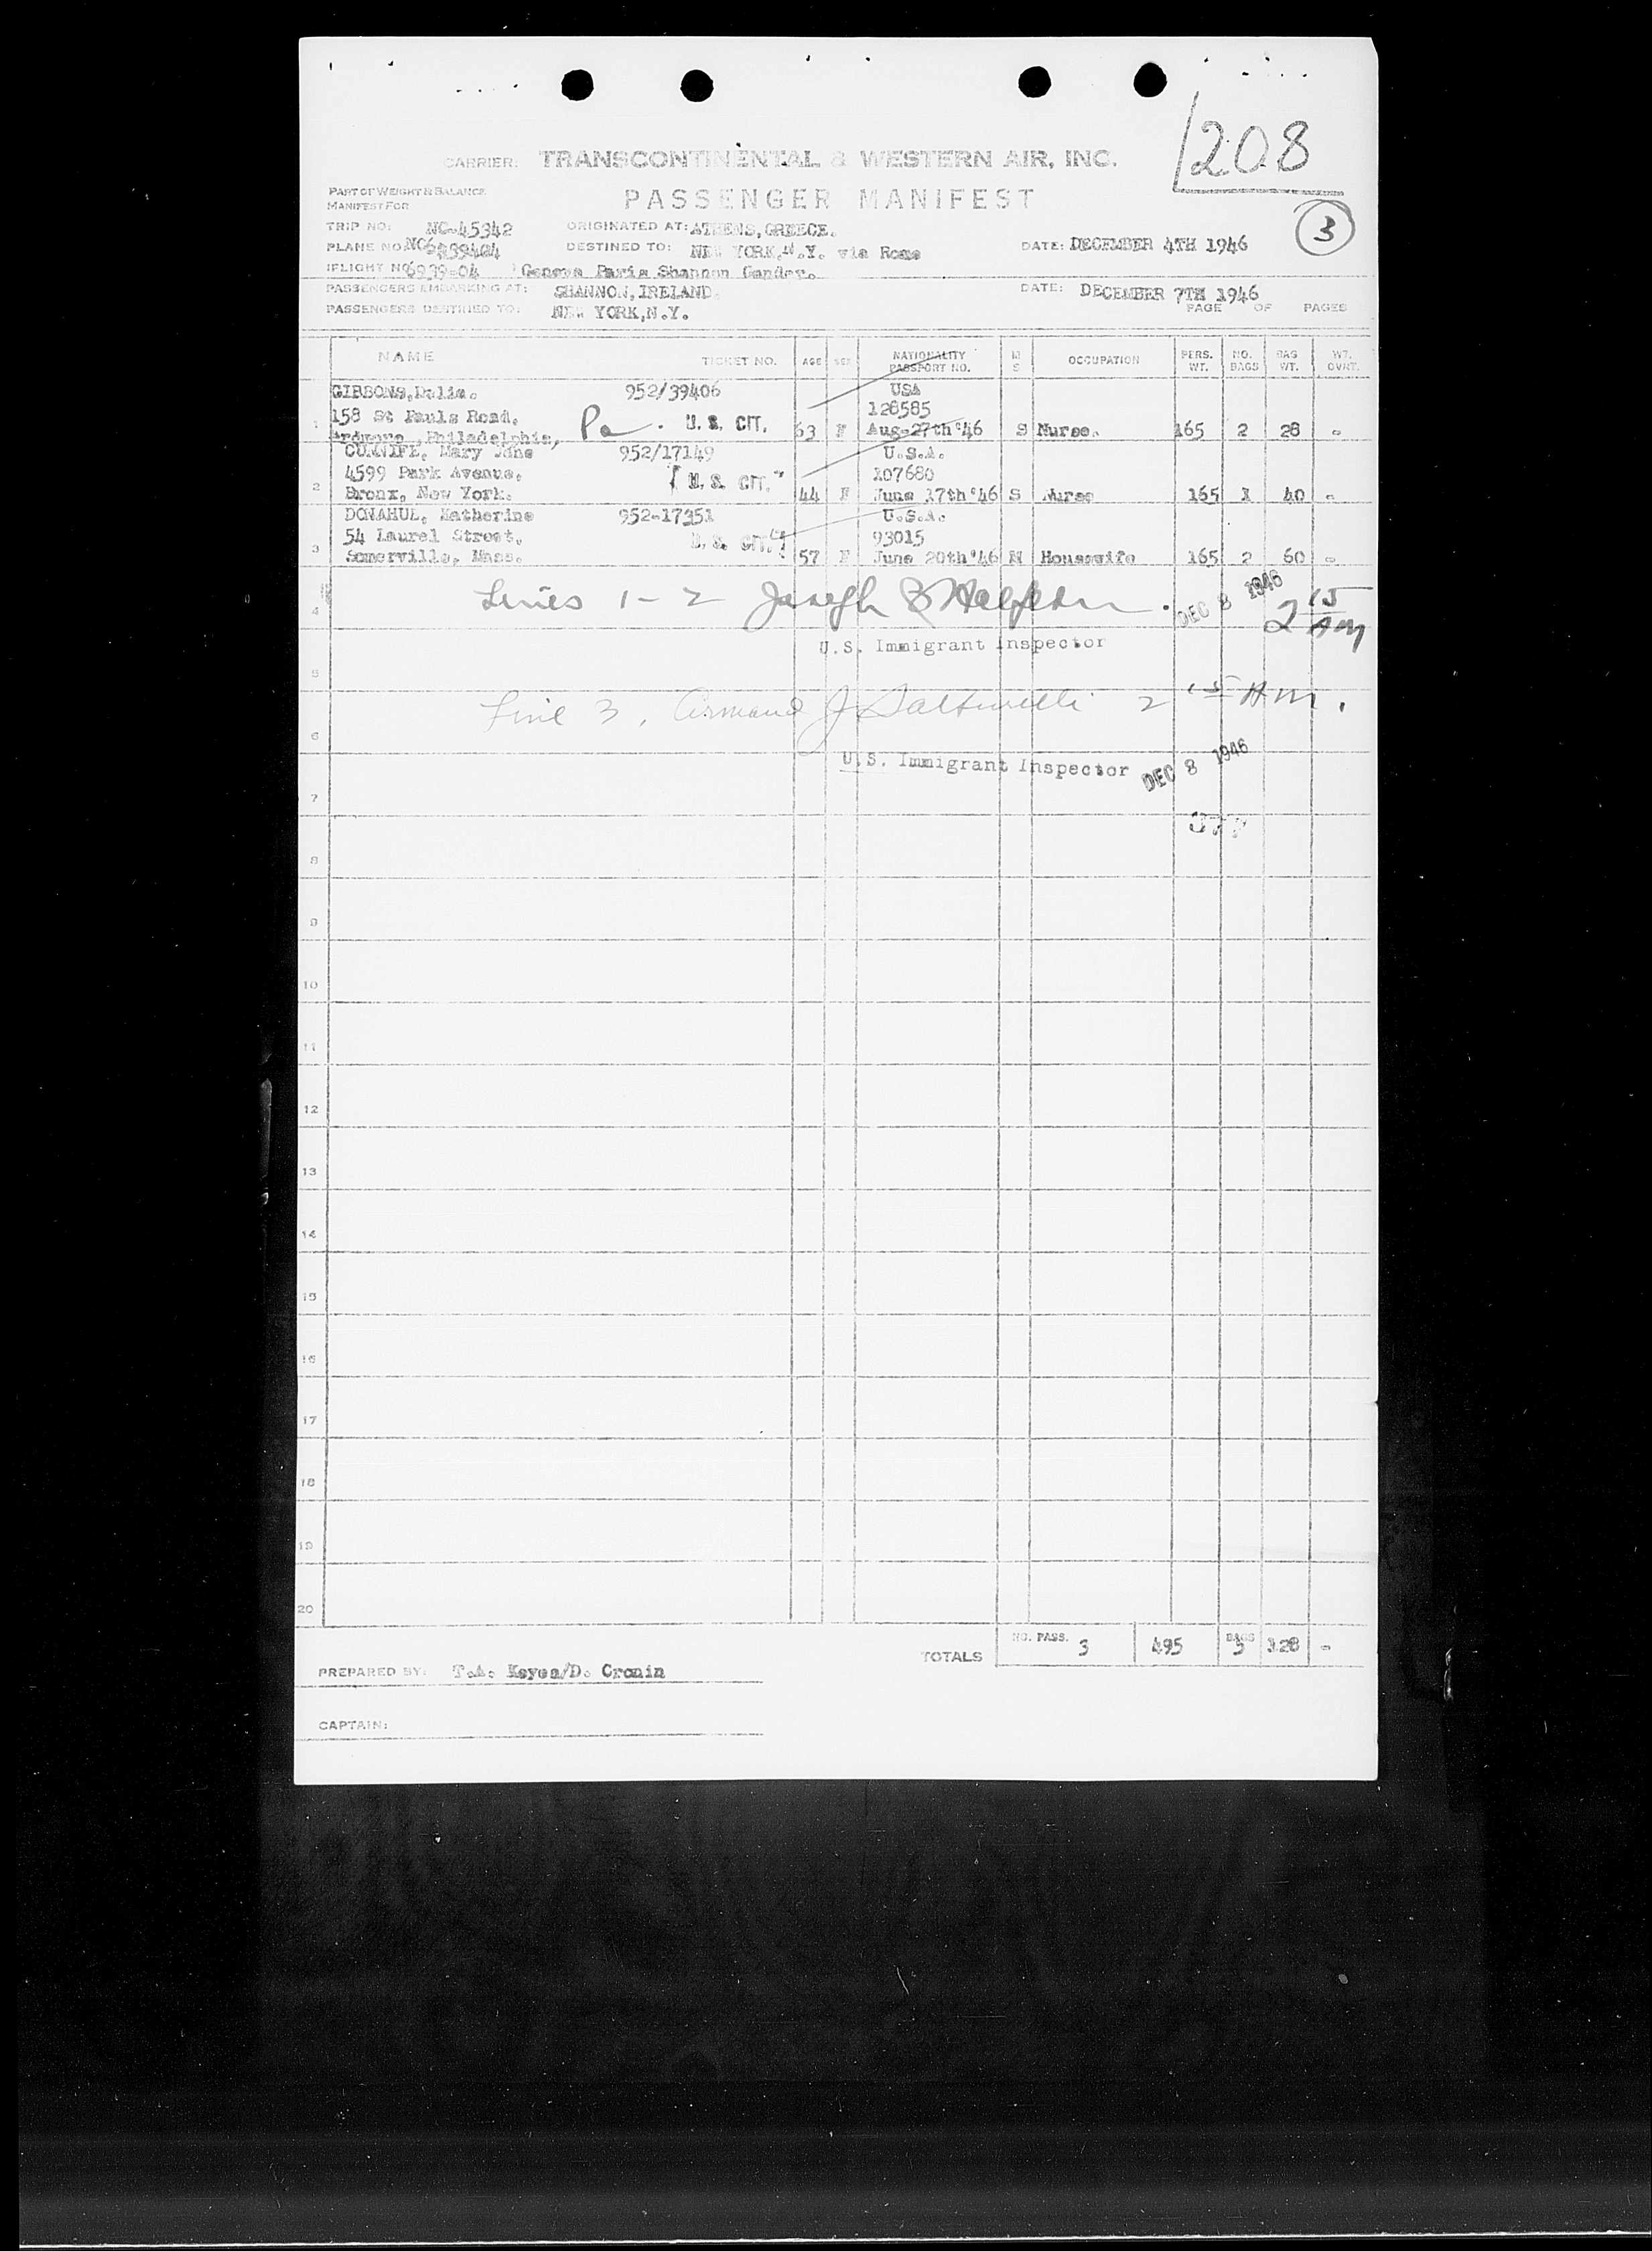 1208
CARRIER: TRANSCONTINENTAL & WESTERN AIR, INC.
PART OF WEIGHT & BALANCE
MANIFEST FOR
PASSENGER MANIFEST
3
TRIP NO: NC-45342 ORIGINATED AT: ATHENS, GREECE.
PLANE NO: DESTINED TO: NEW YORK, N.Y. via Rome DATE: DECEMBER 4TH 1946
FLIGHT NO 6939-04 Geneva Paris Shannon Gander.
PASSENGERS EMBARKING AT: SHANNON, IRELAND. DATE: DECEMBER 7TH 1946
PASSENGERS DESTINED TO: NEW YORK, N.Y. PAGE OF PAGES
NAME TICKET NO. AGE SEX NATIONALITY PASSPORT NO. M S OCCUPATION PERS. WT. NO. BAGS BAG WT. WT. OVRT.
GIBBONS, Delia. 952/39406 USA
158 St Pauls Road. 128585
1 Ardmore, Philadelphia, Pa. U. S. CIT. 63 F Aug-27th'46 S Nurse. 165 2 28 -
CUNNIFE, Mary Jane 952/17149 U.S.A.
4599 Park Avenue. U. S. CIT. 107680
2 Bronx, New York. 44 F June 17th'46 S Nurse 165 1 40 -
DONAHUE, Katherine 952-17351 U.S.A.
54 Laurel Street. U. S. CIT. 93015
3 Somerville, Mass. 57 F June 20th'46 M Housewife 165 2 60 -
4 Lines 1-2 Joseph DEC 8 1946 2 15 AM
U.S. Immigrant Inspector
5
Line 3, Armand J 2 15 AM.
6
U.S. Immigrant Inspector DEC 8 1946
7
8
9
10
11
12
13
14
15
16
17
18
19
20
TOTALS NO. PASS. 3 495 BAGS 5 128 -
PREPARED BY: T.A. Keyes/D. Cronin
CAPTAIN: